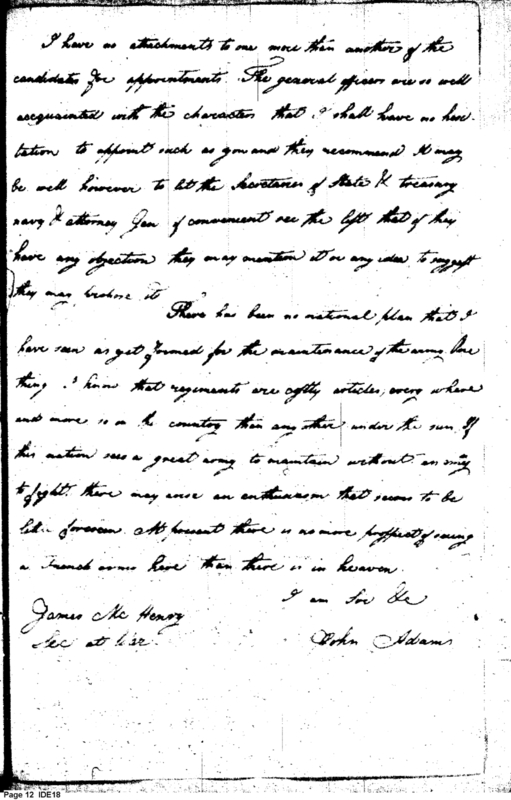 I have no attachments to one more than another of the
candidates for appointments. The general officers are so well
acquainted with the characters that I shall have no hesi-
tation to appoint such as you and they recommend It may
be well however to let the Secretaries of State & treasury
navy & attorney Gen if convenient see the list that if they
have any objection they may mention it or any idea to suggest
they may propose it
There has been no national plan that I
have seen as yet formed for the maintenance of the army. One
thing I know that regiments are costly articles, every where
and more so in the country than any other under the sun. If
this nation sees a great army to maintain without an enemy
to fight there may arise an enthusiasm that seems to be
little foreseen. At present there is no more prospect of seeing
a French army here than there is in heaven.
I am Sir &c
James McHenry
Sec at War
John Adams
Page 12 IDE18